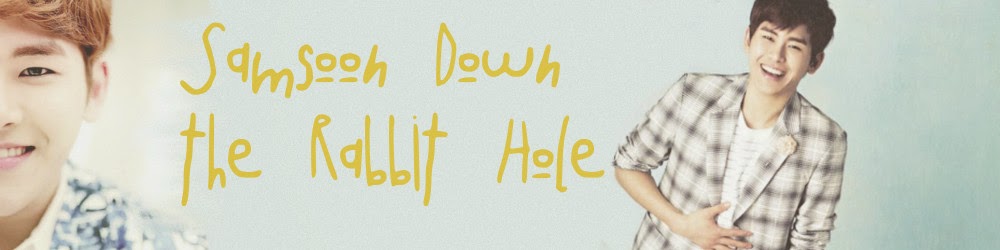 Samsooh Down
the Rabbit Hole